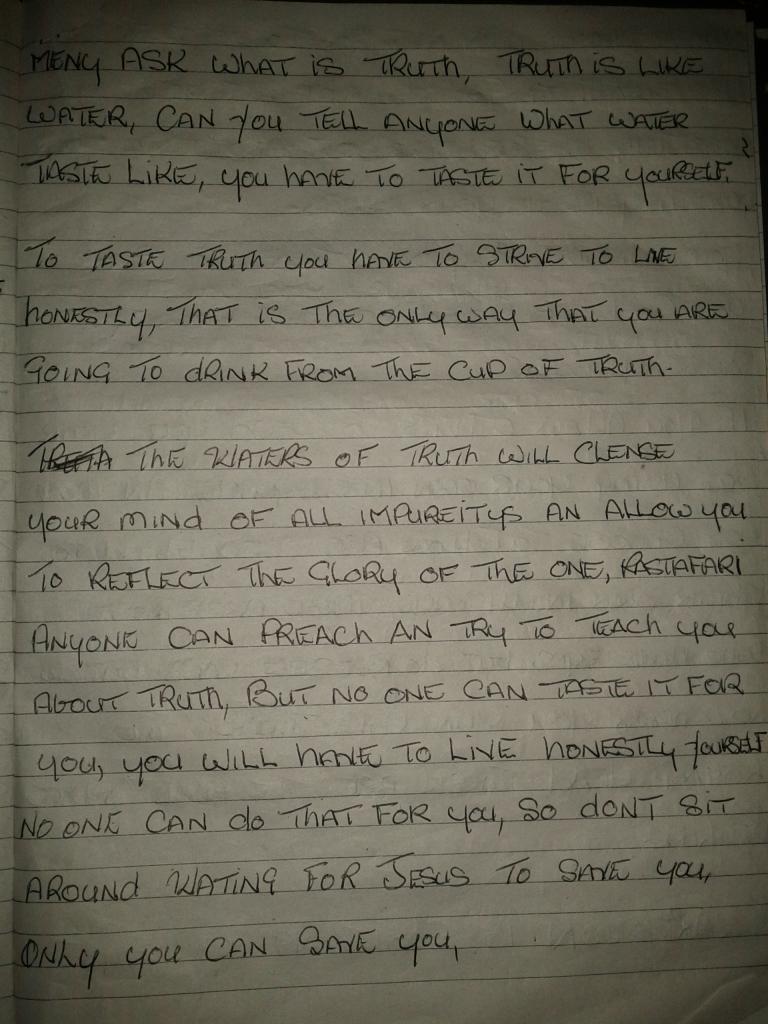 MENY ASK WHAT IS TRUTH, TRUTH IS LIKE
WATER, CAN YOU TELL ANYONE WHAT WATER
TASTE LIKE, YOU HAVE TO TASTE IT FOR YOURSELF.
TO TASTE TRUTH YOU HAVE TO STRIVE TO LIVE
HONESTLY, THAT IS THE ONLY WAY THAT YOU ARE
GOING TO DRINK FROM THE CUP OF TRUTH.
THE WATERS OF TRUTH WILL CLENSE
YOUR MIND OF ALL IMPUREITYS AN ALLOW YOU
TO REFLECT THE GLORY OF THE ONE, RASTAFARI
ANYONE CAN PREACH AN TRY TO TEACH YOU
ABOUT TRUTH, BUT NO ONE CAN TASTE IT FOR
YOU, YOU WILL HAVE TO LIVE HONESTLY YOURSELF
NO ONE CAN do THAT FOR YOU, SO dONT SIT
AROUND WATING FOR JESUS TO SAVE YOU,
ONLY YOU CAN SAVE YOU,